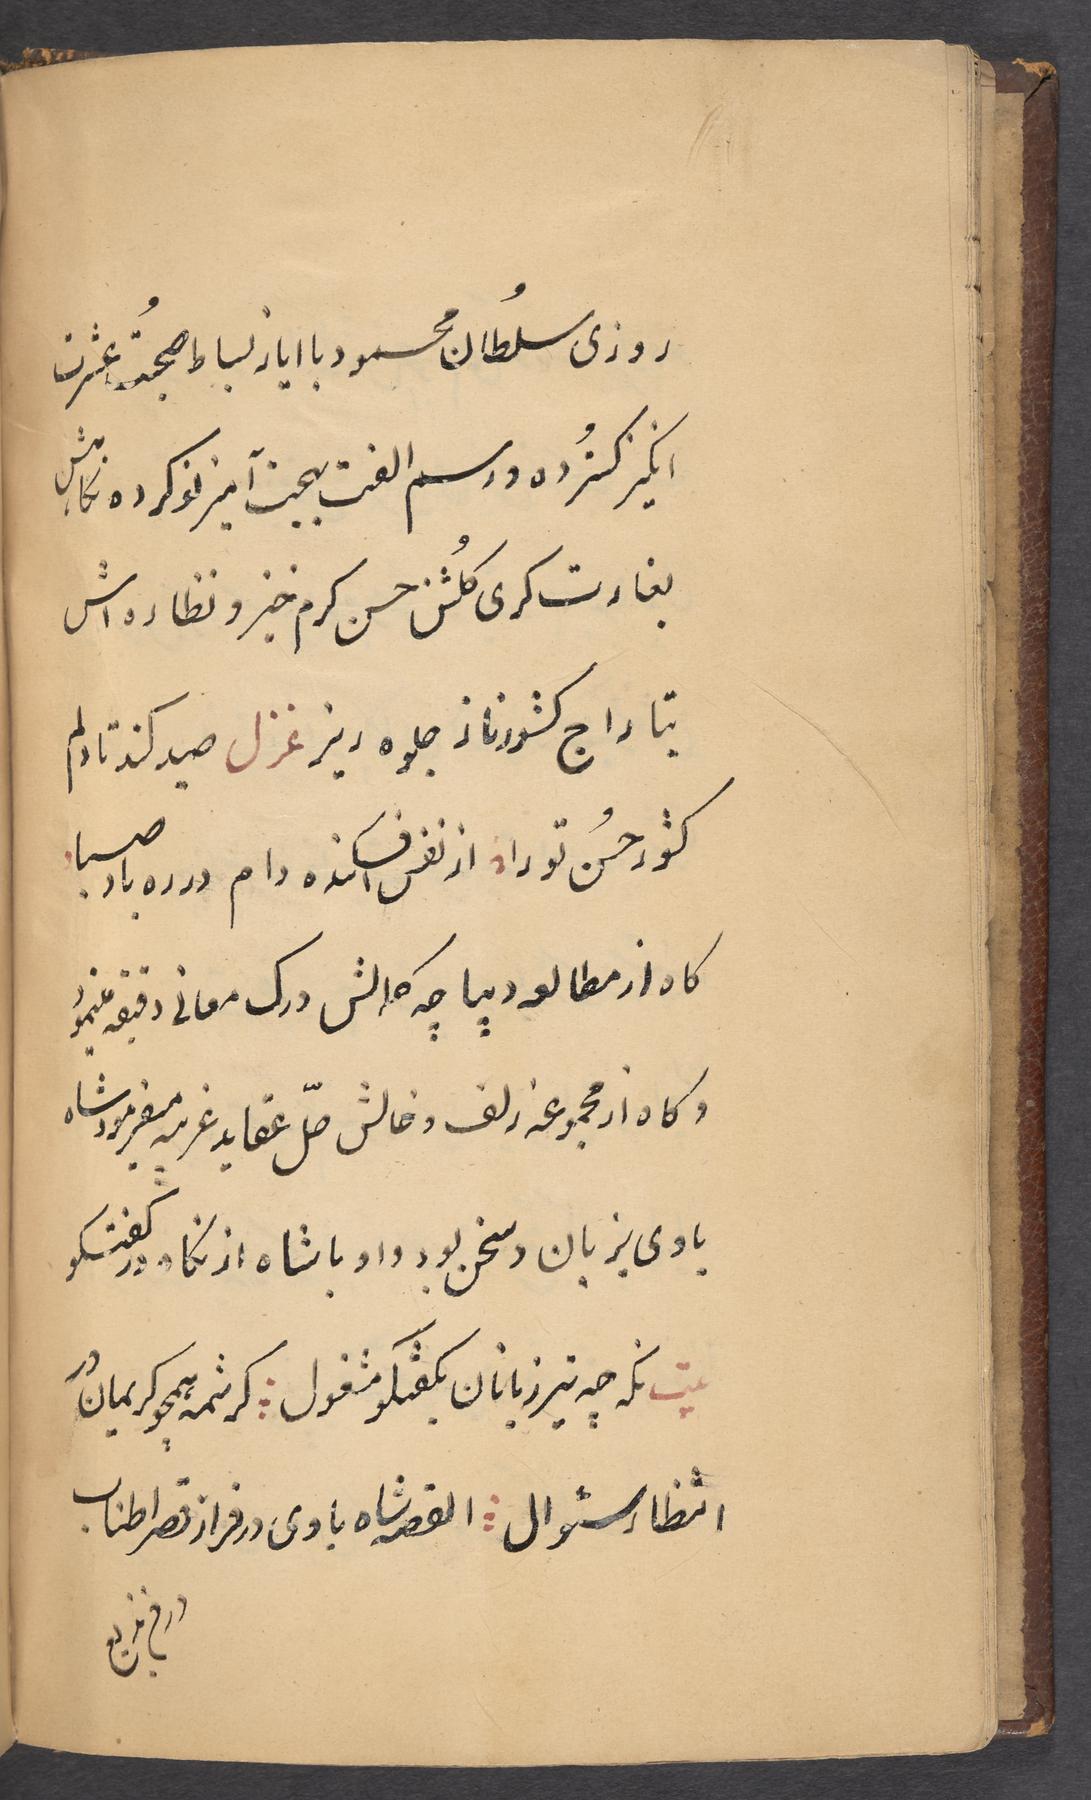 روزی سلطان محمود با ایاز بساط صحبت عشرت
انکیز کسترده و رسم الفت بهجت آمیز نو کرده نکاهش
بغارت کری کلشن حسن کرم خیز و نظاره اش
بتاراج کشور ناز جلوه ریز غزل صید کند تا دلم
کشور حسن تو را از نفس افکنده دام در ره باد صبا
کاه از مطالعه دیباچه کمالش درک معانی دقیقه مینمود
و کاه از مجموعه زلف و خالش حلّ عقاید غریبه میفرمود شاه
با وی بزبان در سخن بود و او با شاه از نکاه در کفتکو
بیت نکه چه تیز زبانان بکفتکو مشغول کرشمه همچو کریمان در
انتظار سئوال القصه شاه با وی در فراز قصر اطناب